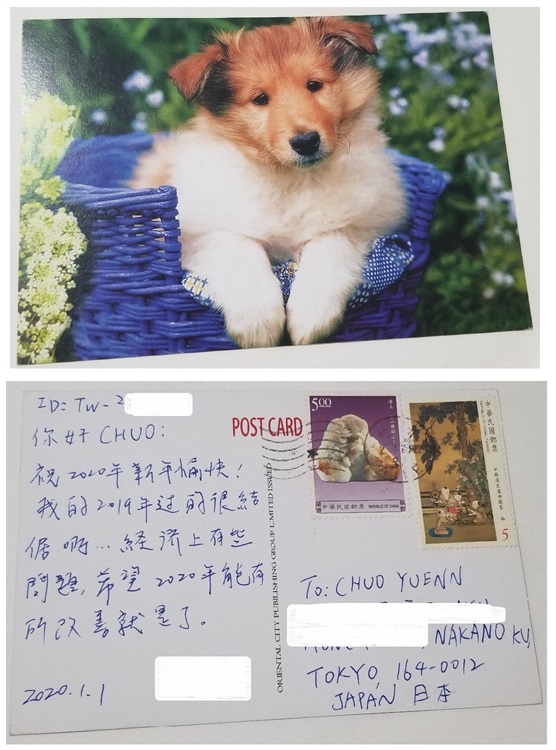 ID: TW-2
你好 CHUO:
祝2020年新年愉快!
我的2019年过的很結
倨啊...經济上有些
問題,希望2020年能有
所改善就是了。
2020.1.1
POST CARD
ORIENTAL CITY PUBLISHING GROUP LIMITED ISSUED
5.00
中華民國郵票 REPUBLIC OF CHINA
中華民國郵票
5
TO: CHUO YUENN
NAKANO KU,
TOKYO, 164-0012
JAPAN 日本